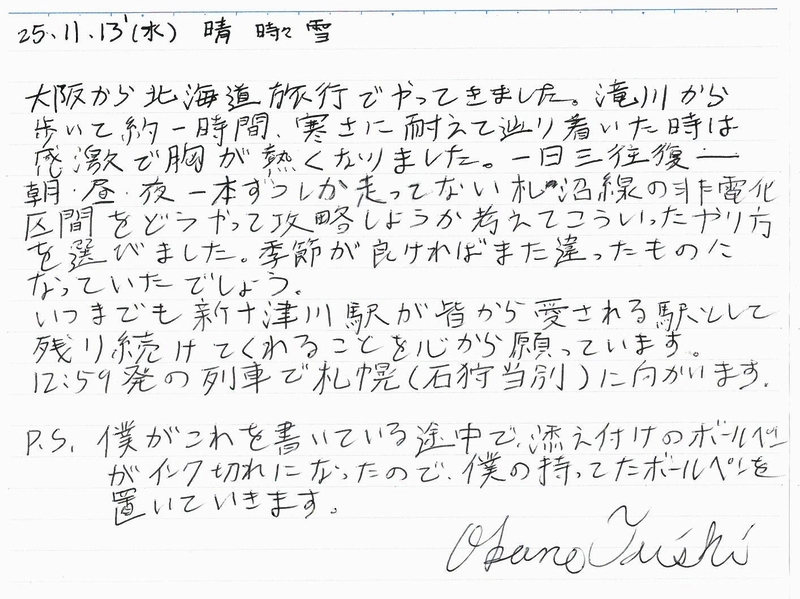 25.11.13(水) 晴 時々 雪
大阪から北海道旅行でやってきました。滝川から
歩いて約一時間、寒さに耐えて辿り着いた時は
感激で胸が熱くなりました。一日三往復―
朝・昼・夜 一本ずつしか走ってない札沼線の非電化
区間をどうやって攻略しようか考えてこういったやり方
を選びました。季節が良ければまた違ったものに
なっていたでしょう。
いつまでも新十津川駅が皆から愛される駅として
残り続けてくれることを心から願っています。
12:59発の列車で札幌(石狩当別)に向かいます。
P.S. 僕がこれを書いている途中で、添え付けのボールペン
がインク切れになったので、僕の持ってたボールペンを
置いていきます。